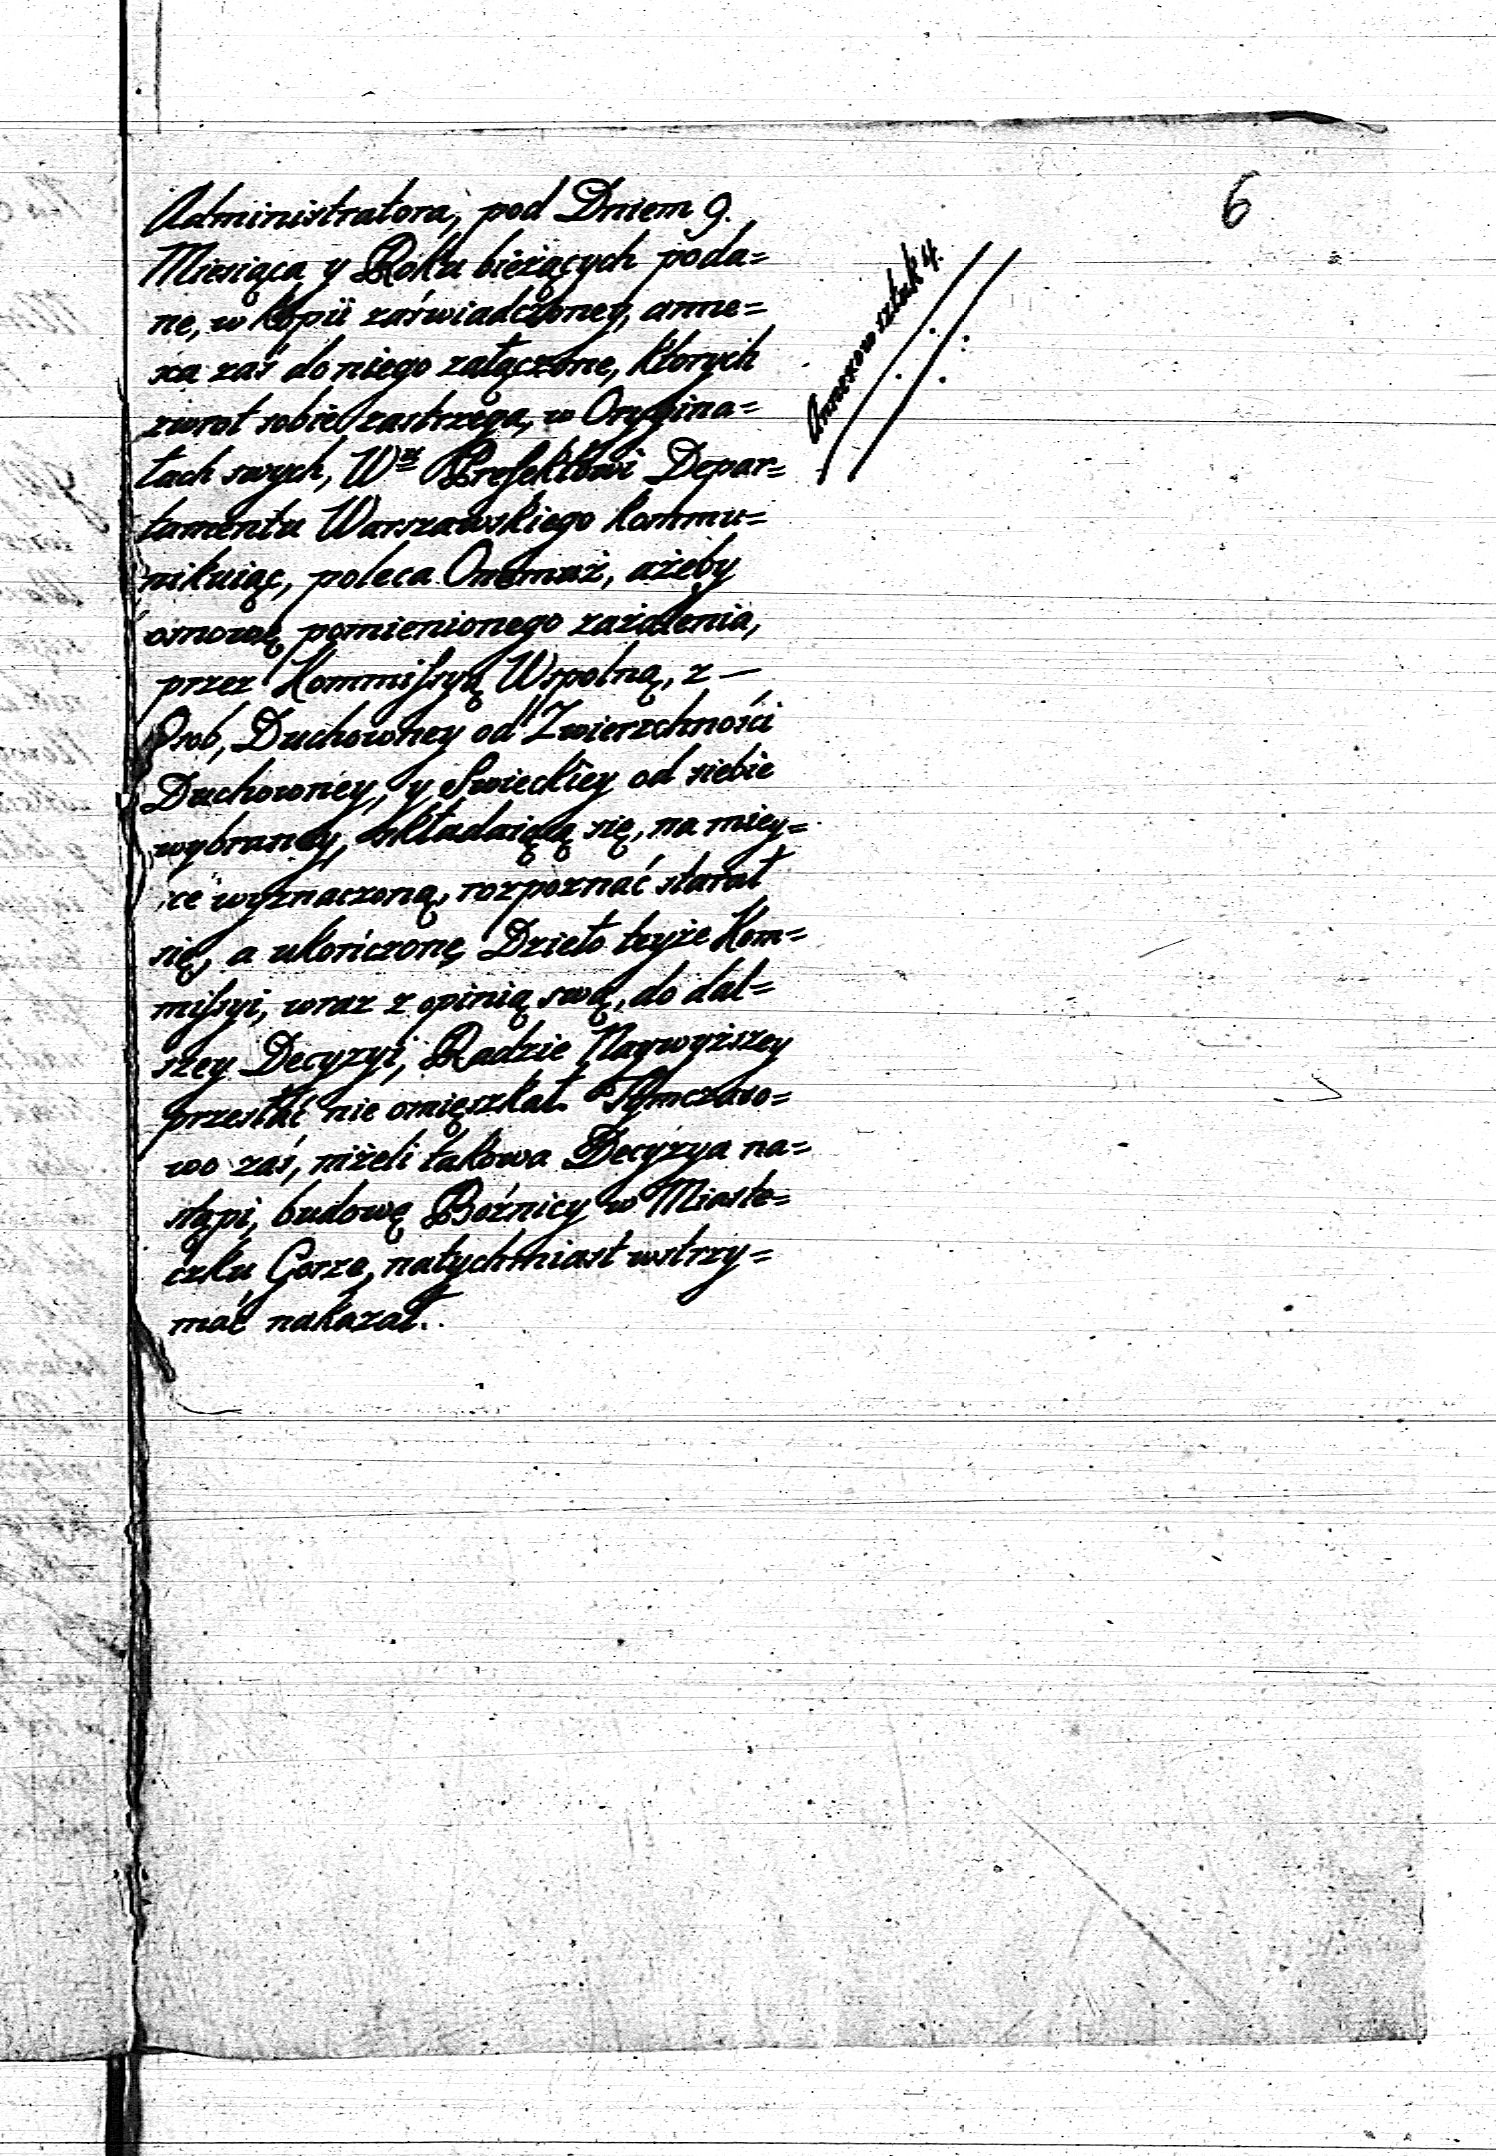 6
Administratora, pod Dniem 9.
Miesiąca y Roku bieżących poda=
ne, w kopii zaświadczoney, anne=
xa zaś do niego załączone, ktorych
zwrot sobie zastrzega, w Orygina=
łach swych, W<sup>u</sup> Prefektowi Depar=
tamentu Warszawskiego kommu=
nikuiąc, poleca Onemuż, ażeby
osnowę pomienionego zażalenia,
przez Kommissyą Wspolną, z —
Osob, Duchowney od Zwierzchności
Duchowney, y Swieckiey od siebie
wybraney, składaiącą się, na miey=
sce wyznaczoną, rozpoznać starał
się, a ukończone Dzieło teyże Kom=
missyi, wraz z opinią swą, do dal=
szey Decyzyi, Radzie Naywyższey
przesłać nie omięszkał. Tymczaso=
wo zaś, niżeli takowa Decyzya na=
stąpi, budowę Bożnicy w Miaste=
czku Gorze, natychmiast wstrzy=
mać nakazał.
Annexow sztuk 4.